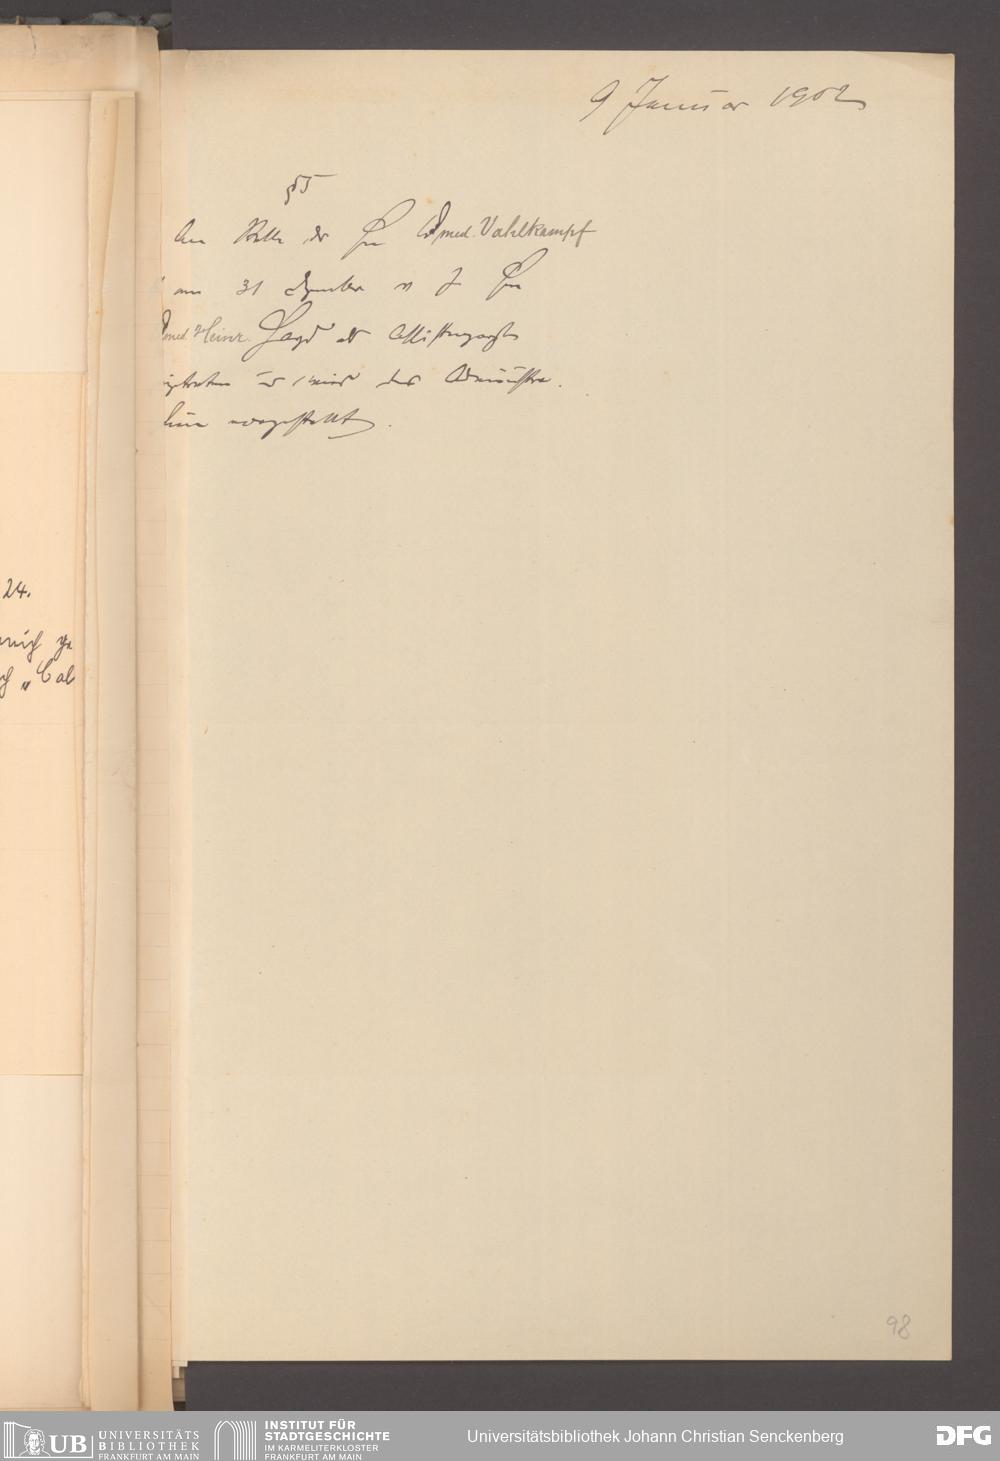 9 Januar 1902
§ 5
An Stelle des Hrn Dr med. Vahlkampf
am 31 Dezember v J Hrn
med Heinr. Jagd als Assistenzarzt
getreten u wird der Administra.
vorgestellt.
24.
mich ge
98
UB UNIVERSITÄTS
BIBLIOTHEK
FRANKFURT AM MAIN
INSTITUT FÜR
STADTGESCHICHTE
IM KARMELITERKLOSTER
FRANKFURT AM MAIN
Universitätsbibliothek Johann Christian Senckenberg
DFG